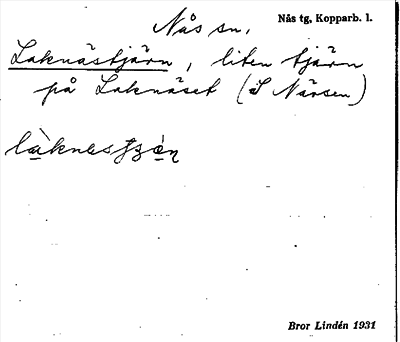 Nås sn.
Nås tg, Kopparb. l.
Laknästjärn, liten tjärn
på Laknäset (i Närsen)
Bror Lindén 1931